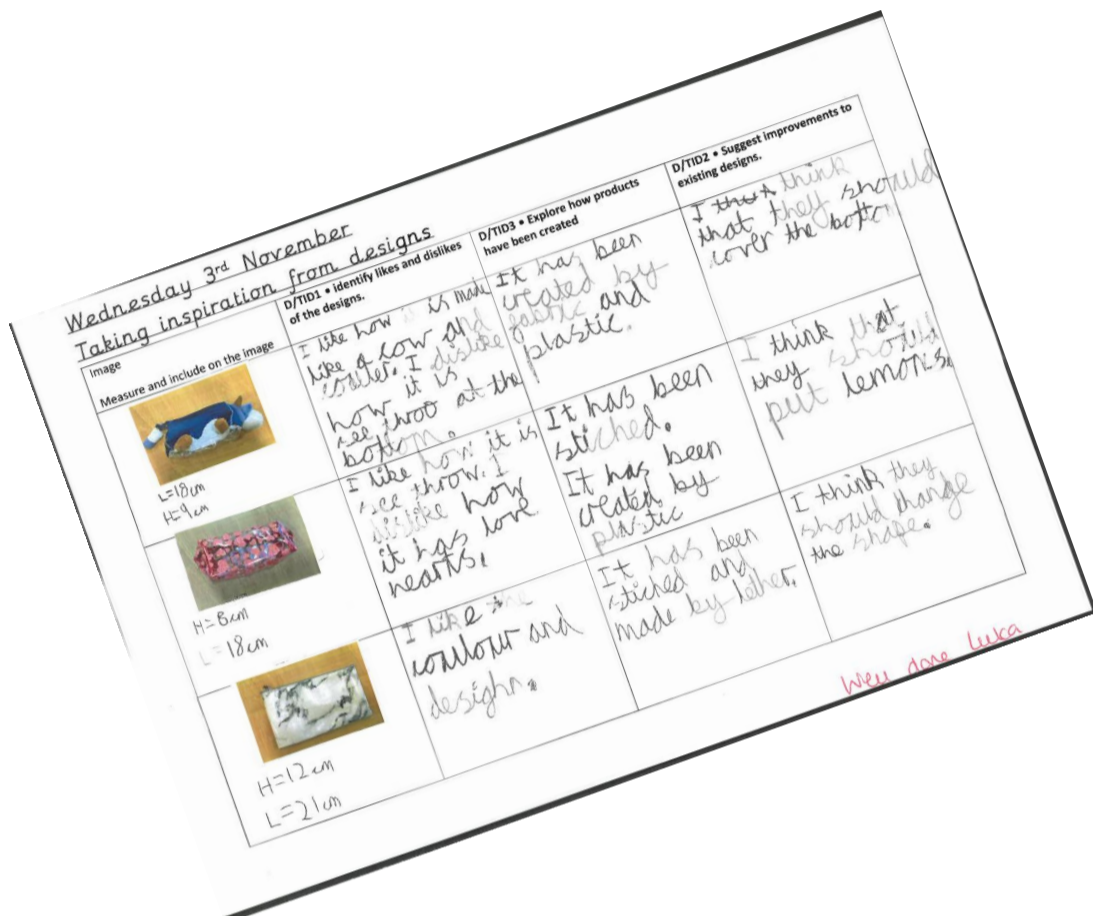 Wednesday 3rd November
Taking inspiration from designs
Image
Measure and include on the image
D/TID1 • identify likes and dislikes
of the designs.
D/TID3 • Explore how products
have been created
D/TID2 • Suggest improvements to
existing designs.
L=18cm
H=9cm
I like how it is made
like a cow and
couler. I dislike
how it is
see throo at the
bottom.
It has been
created by
fabric and
plastic.
I think
that they should
cover the bottom
H=8cm
L=18cm
I like how it is
see throw. I
dislike how
it has love
hearts.
It has been
stiched.
It has been
created by
plastic
I think that
they should
put lemons.
H=12cm
L=21cm
I like the
coulour and
desighn.
It has been
stiched and
made by lether.
I think they
should change
the shape.
Well done Luka